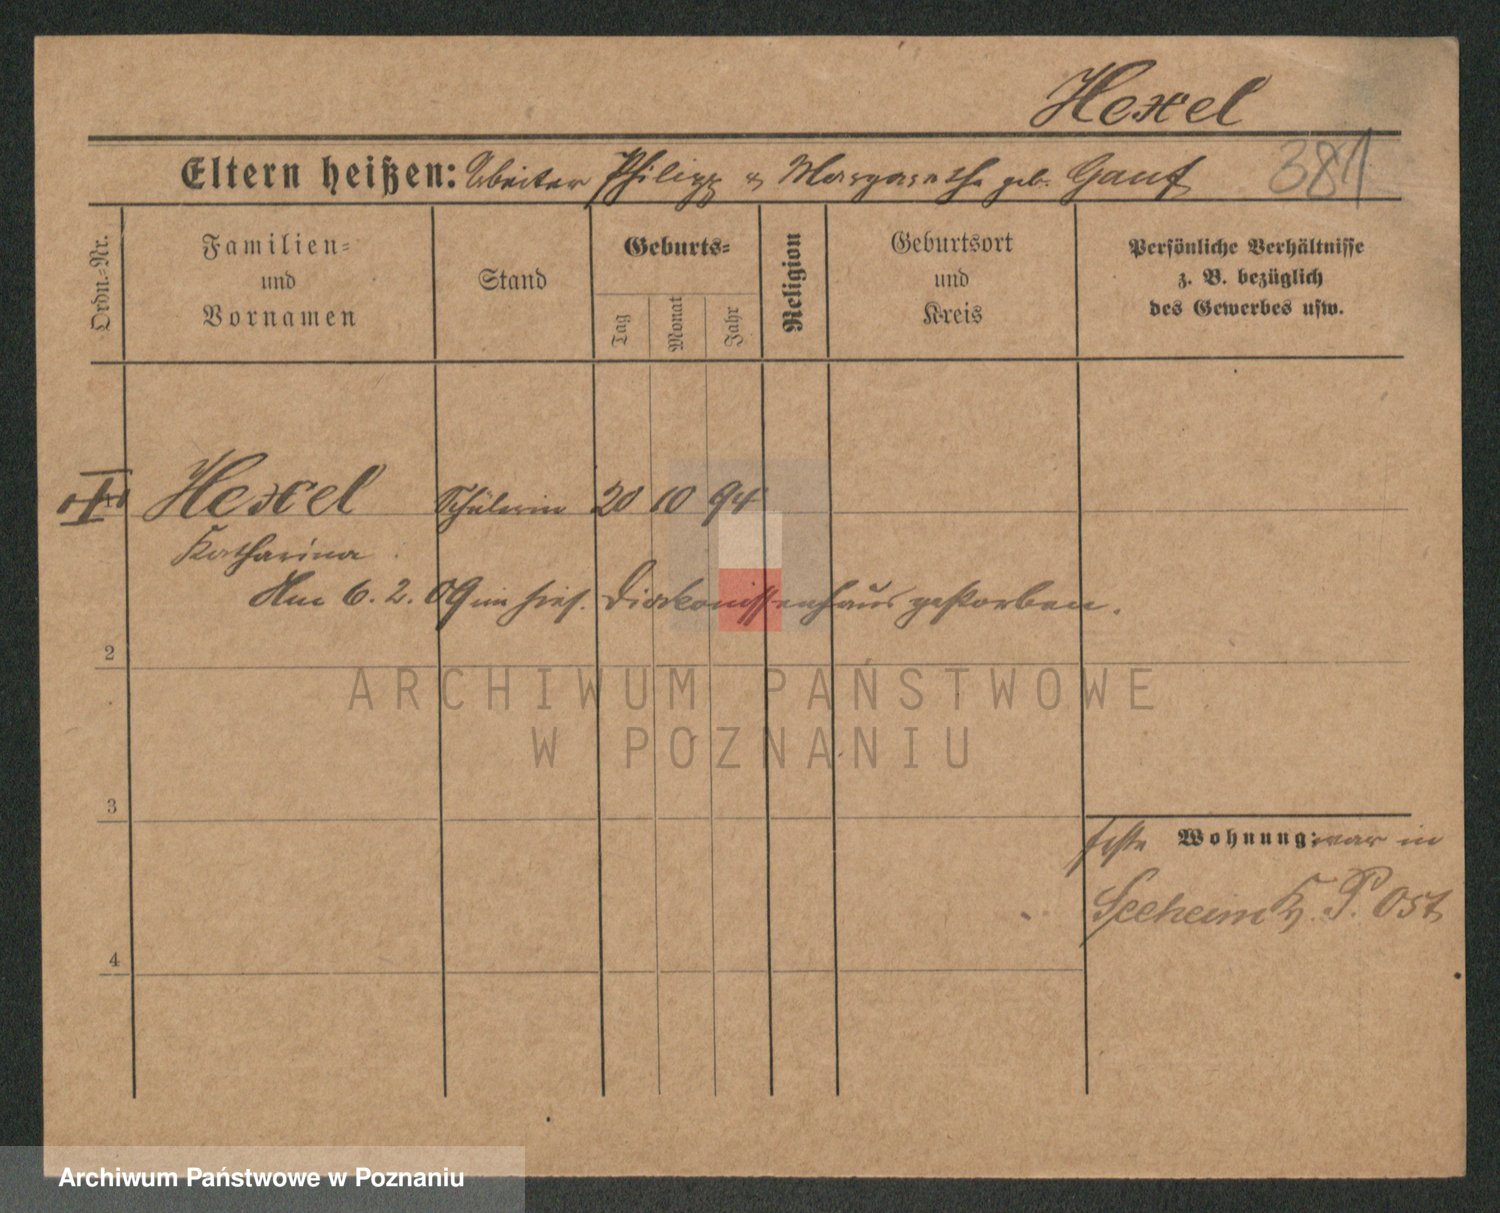 Hexel
Eltern heißen: Arbeiter Philipp u Margarethe geb. Gauf 381
Ordn.-Nr.
Familien- und Vornamen
Stand
Geburts-
Tag
Monat
Jahr
Religion
Geburtsort und Kreis
Persönliche Verhältnisse
z. B. bezüglich
des Gewerbes usw.
Hexel Schülerin 20 10 94
Katharina
Am 6. 2. 09 im hies. Diakonissenhaus gestorben.
2
ARCHIWUM PAŃSTWOWE
W POZNANIU
3
Wohnung: war in
Seeheim Kr. P. Ost
4
Archiwum Państwowe w Poznaniu